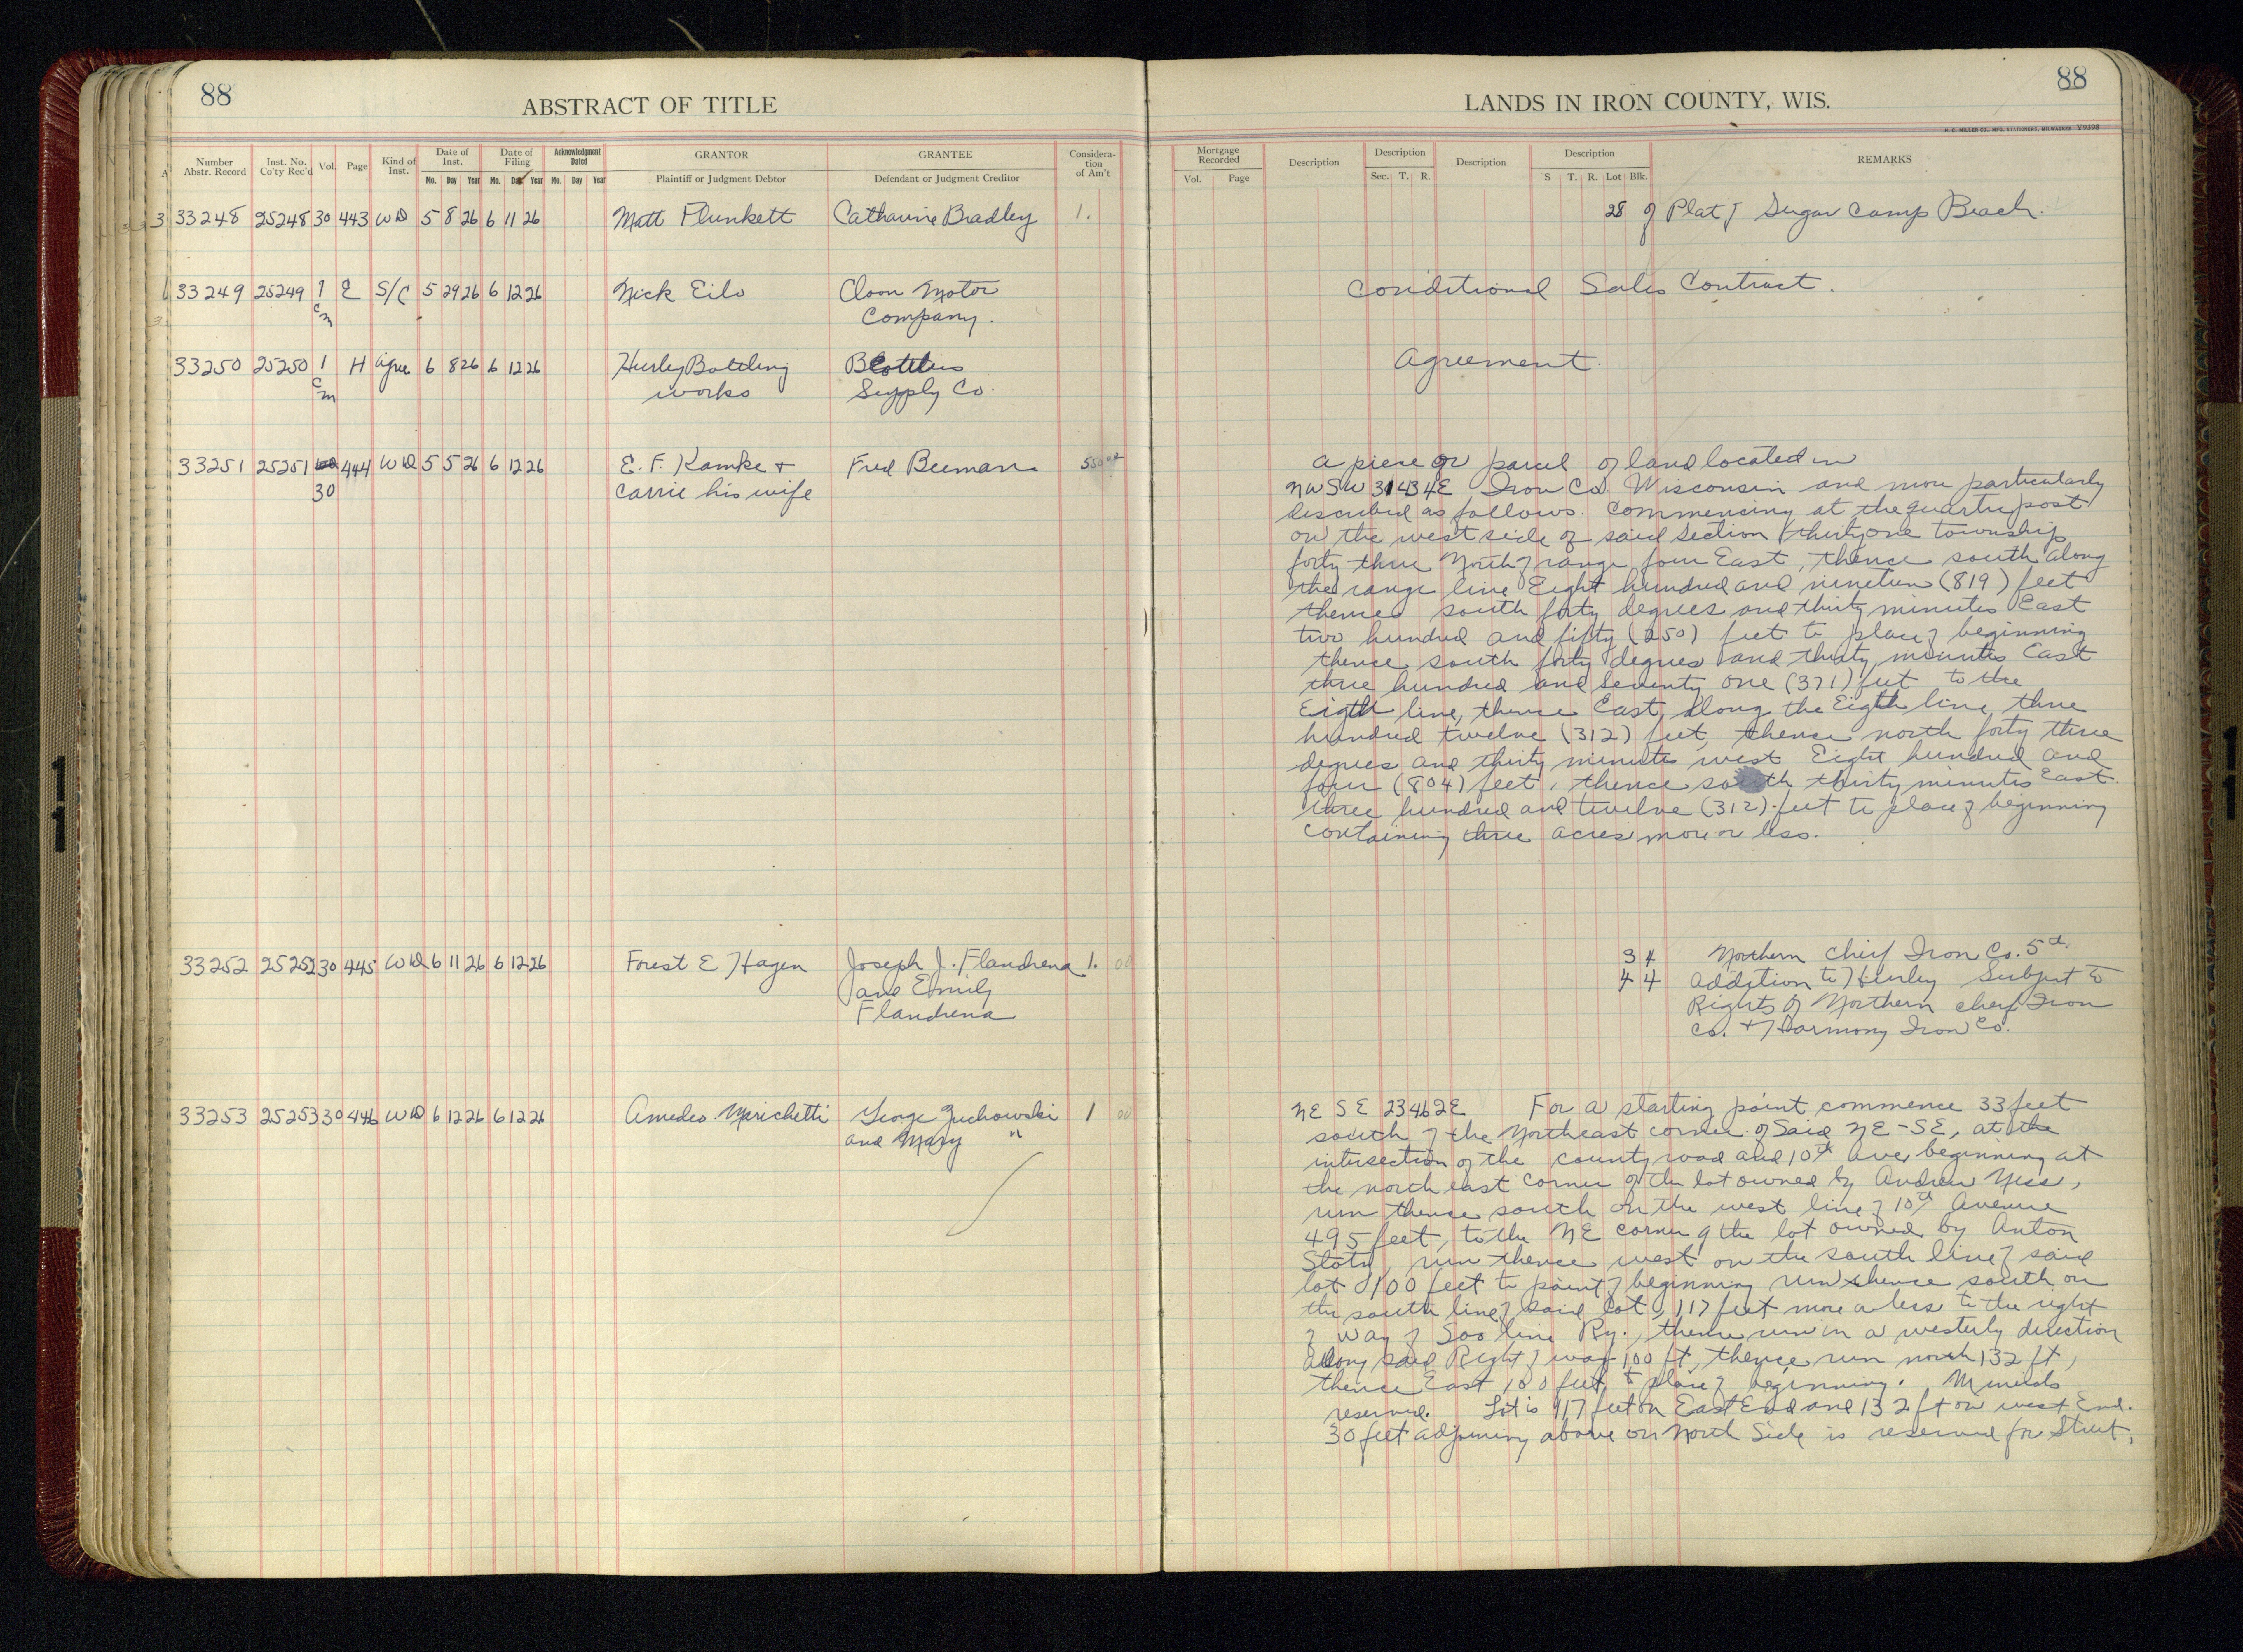 88
ABSTRACT OF TITLE
Number Abstr. Record
Inst. No. Co'ty Rec'd
Vol.
Page
Kind of Inst.
Date of Inst.
Mo. Day Year
Date of Filing
Mo. Day Year
Acknowledgment Dated
Mo. Day Year
GRANTOR
Plaintiff or Judgment Debtor
GRANTEE
Defendant or Judgment Creditor
Considera-
tion
of Am't
33248 25248 30 443 WD 5 8 26 6 11 26 Matt Plunkett Catharine Bradley 1.
33249 25249 1 E S/C 5 29 26 6 12 26 Nick Eilo Cloon Motor
cm Company.
33250 25250 1 H agree 6 8 26 6 12 26 Hurley Bottling Bottlers
cm works Supply Co.
33251 25251 444 WD 5 5 26 6 12 26 E. F. Kamke + Fred Beeman 550 00
30 Carrie his wife
33252 25252 30 445 WD 6 11 26 6 12 26 Forest E Hagen Joseph J. Flandrena 1. 00
and Emily
Flandrena
33253 25253 30 446 WD 6 12 26 6 12 26 Amedeo Marichetti George Zuchowski 1 00
and Mary "
88
LANDS IN IRON COUNTY, WIS.
H. C. MILLER CO., MFG. STATIONERS, MILWAUKEE Y9398
Mortgage Recorded
Vol. Page
Description
Description
Sec. T. R.
Description
Description
S T. R. Lot Blk.
REMARKS
28 of Plat of Sugar Camp Beach.
Conditional Sales Contract.
Agreement.
a piece or parcel of land located in
NW SW 31 43 4E Iron Co. Wisconsin and more particularly
described as follows. Commencing at the quarter post
on the west side of said section thirty one township
forty three North of range four East, thence south along
the range line Eight hundred and nineteen (819) feet
thence south forty degrees and thirty minutes East
two hundred and fifty (250) feet to place of beginning
thence south forty degrees and thirty minutes East
three hundred and seventy one (371) feet to the
Eigth line, thence East, along the Eigth line three
hundred twelve (312) feet, thence north forty three
degrees and thirty minutes west Eight hundred and
four (804) feet, thence south thirty minutes East
three hundred and twelve (312) feet to place of beginning
containing three acres more or less.
3 4 Northern Chief Iron Co. 5th
4 4 addition to Hurley Subject to
Rights of Northern Chief Iron
Co. + Harmony Iron Co.
NE SE 23 46 2E For a starting point commence 33 feet
south of the Northeast corner of Said NE-SE, at the
intersection of the county road and 10th ave, beginning at
the north east corner of the lot owned by Andrew
run thence south on the west line of 10th Avenue
495 feet, to the NE corner of the lot owned by Anton
run thence west on the south line of said
lot 100 feet to point of beginning run thence south on
the south line of said lot, 117 feet more or less to the right
of way of Soo line Ry., thence run in a westerly direction
along said Right of way 100 ft, thence run north 132 ft,
thence East 100 feet to place of beginning. Minerals
reserved. Lot is 117 feet on East End and 132 ft on west End.
30 feet adjoining above on North Side is reserved for Street.